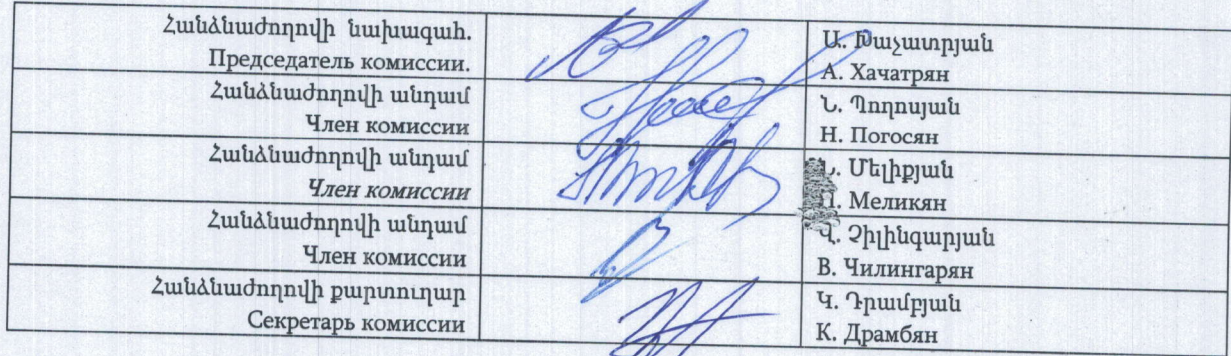 Հանձնաժողովի նախագահ.
Председатель комиссии.
Ա. Խաչատրյան
А. Хачатрян
Հանձնաժողովի անդամ
Член комиссии
Ն. Պողոսյան
Н. Погосян
Հանձնաժողովի անդամ
Член комиссии
Մելիքյան
Меликян
Հանձնաժողովի անդամ
Член комиссии
Վ. Չիլինգարյան
В. Чилингарян
Հանձնաժողովի քարտուղար
Секретарь комиссии
Կ. Դրամբյան
К. Драмбян